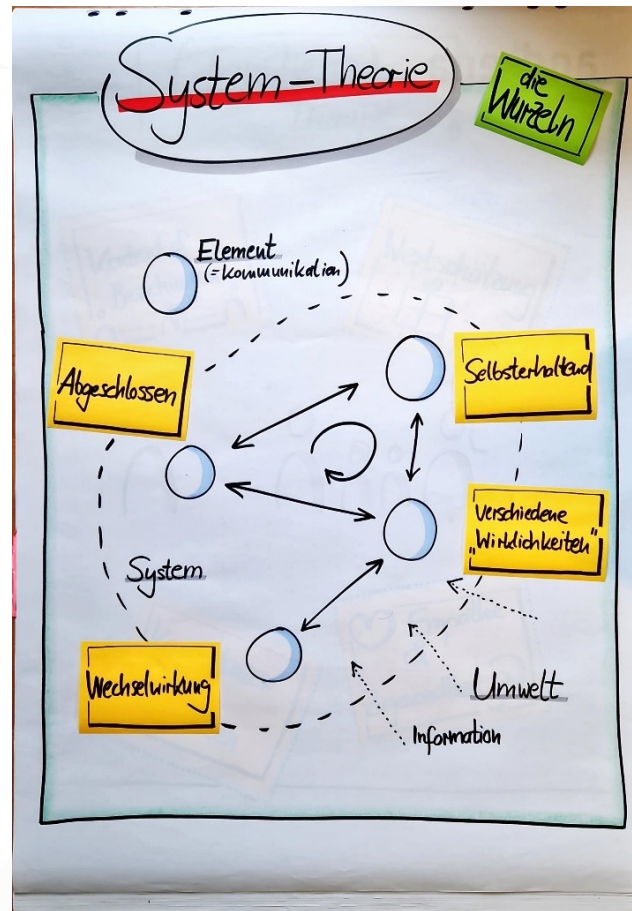 System-Theorie
die
Wurzeln
Element
(=Kommunikation)
Abgeschlossen
Selbsterhaltend
Verschiedene
„Wirklichkeiten"
System
Wechselwirkung
Umwelt
Information